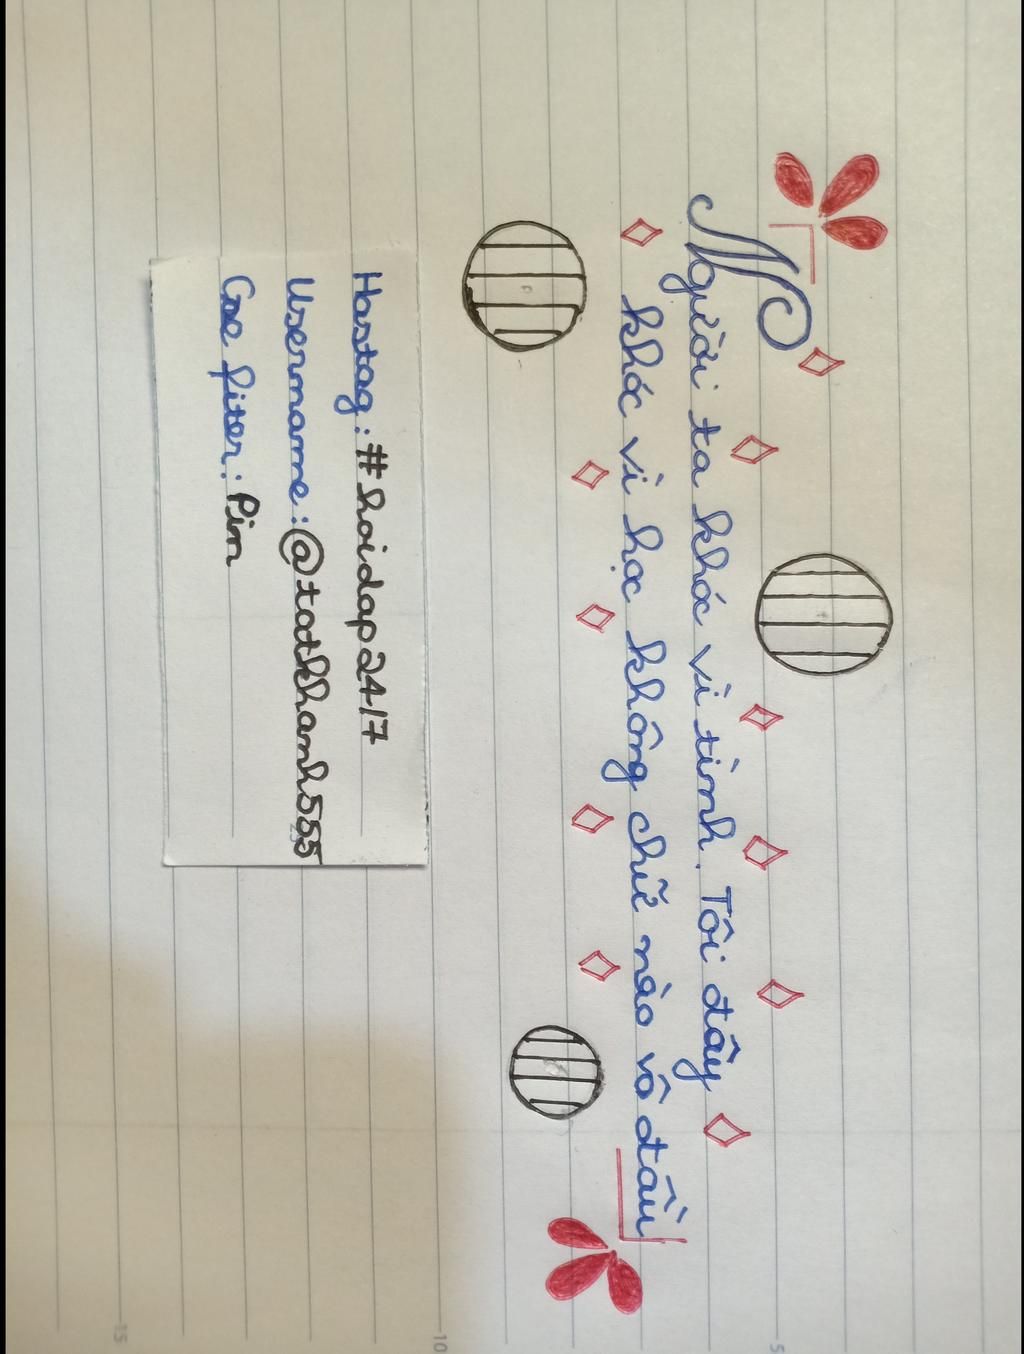 Người ta khóc vì tình. Tôi đây
khóc vì học không chữ nào vô đầu
Hastag: #hoidap247
Username: @tatkhanh555
Cae fiter: Pim
5
10
15